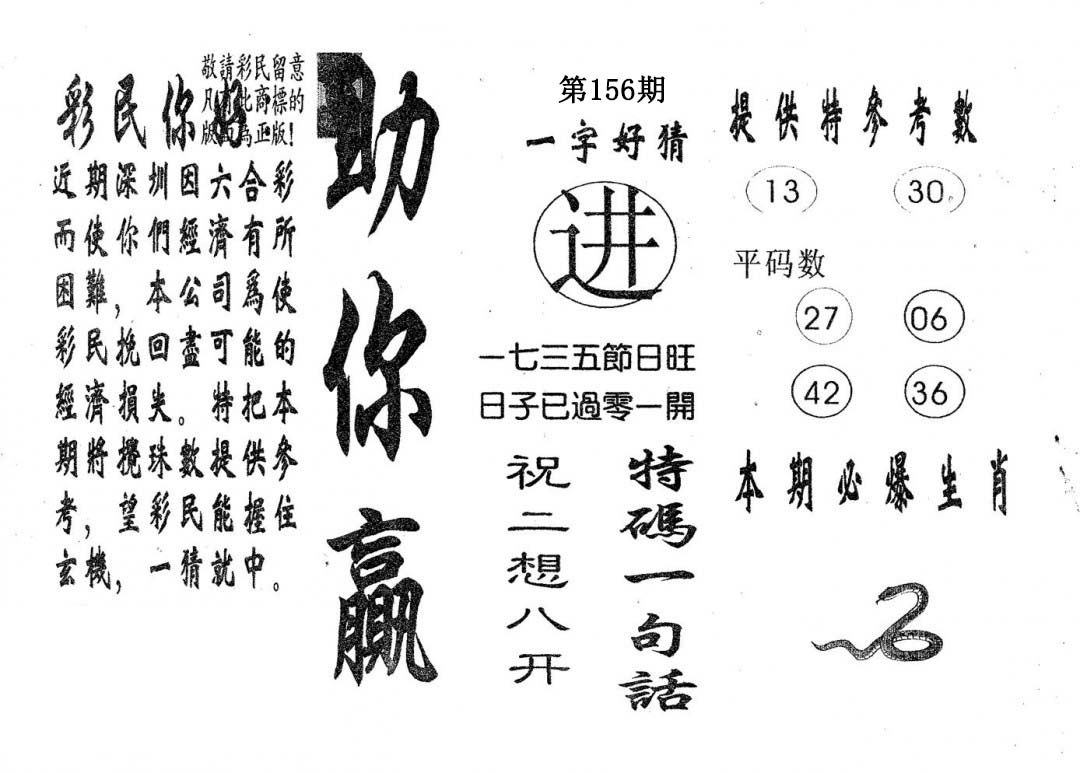 敬請彩民留意
凡有此商標的
版面為正版!
彩民你好
近期深圳因六合彩
而使你們經濟有所
困難,本公司爲使
彩民挽回盡可能的
經濟損失。特把本
期將攪珠數提供參
考,望彩民能握住
玄機,一猜就中。
助你贏
第156期
一字好猜
进
一七三五節日旺
日子已過零一開
特碼一句話
祝二想八开
提供特參考數
13 30
平码数
27 06
42 36
本期必爆生肖